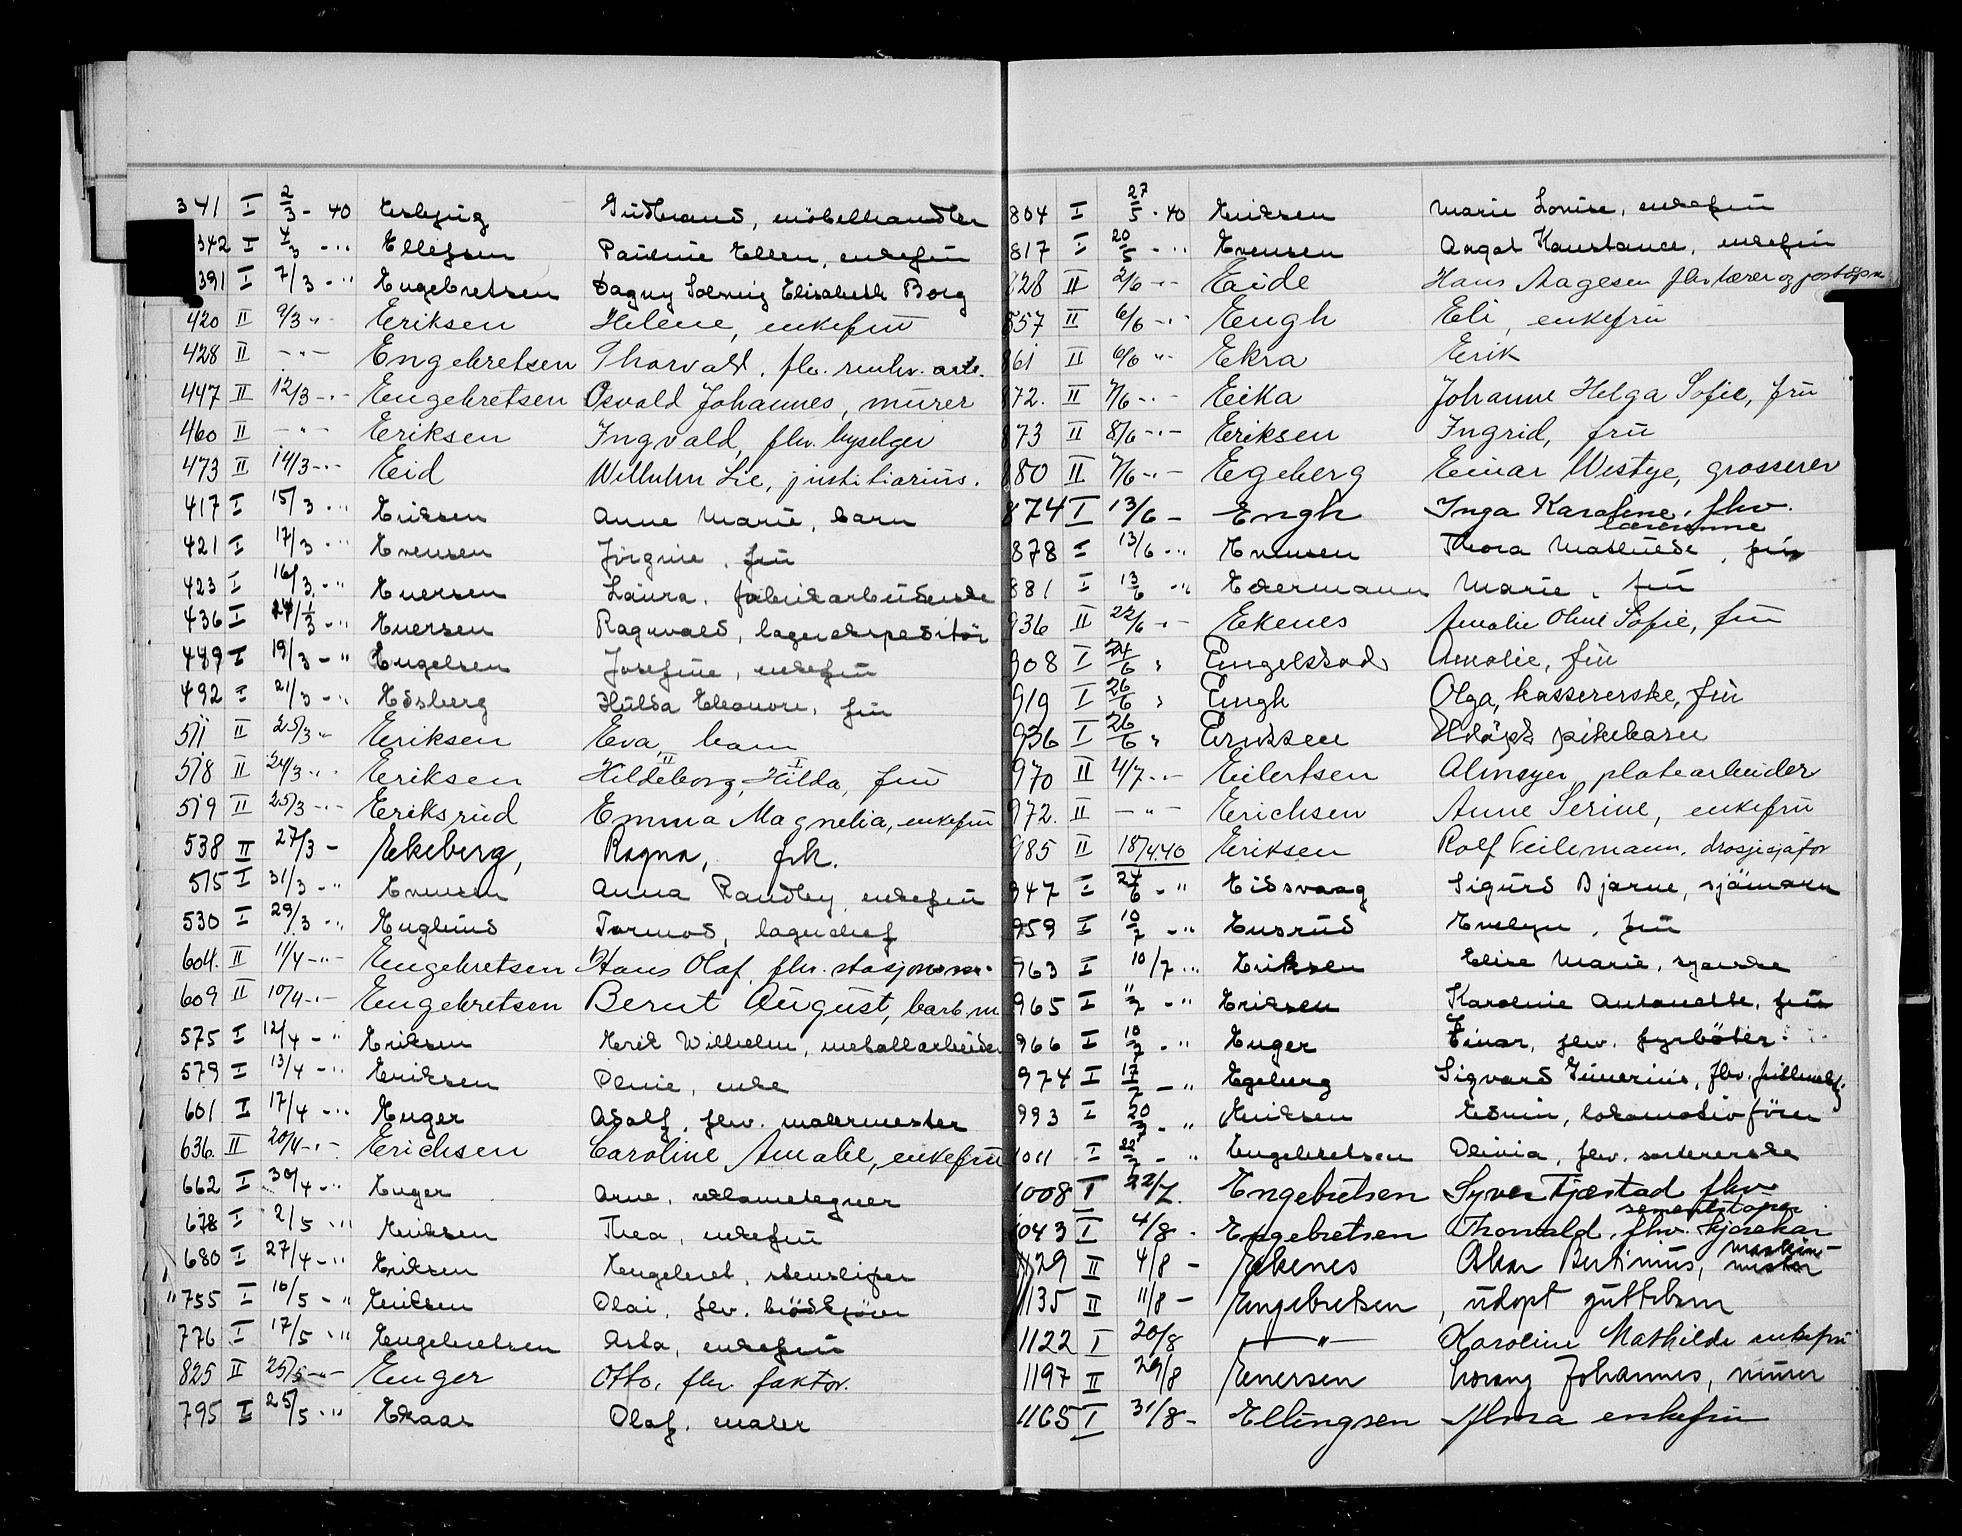 341 I 2/3 - 40 Gudbrand, möbelhandler
342 I 4/3 - " Ellefsen Pauline Ellen, enkefru
391 I 7/3 - " Engebretsen Dagny Solveig Elisabeth Borg
420 II 9/3 " Eriksen Helene, enkefru
428 II - " - Engebretsen Thorvald, fhv. renhv. arb.
447 II 12/3 - " - Engebretsen Osvald Johannes, murer
460 II - " - Eriksen Ingvald, fhv. hyselger
473 II 14/3 - " - Eid Wilhelm Lie, justitiarius.
417 I 15/3 - " Eriksen Anne Marie, barn
421 I 17/3 - " Evensen Jörgine, fru
423 I 16/3 - " Enersen Laura, fabrikarbeiderske
436 I 3 - " Enersen Ragnvald, lagerekspeditör
489 I 19/3 - " Engelsen Josefine, enkefru
492 I 21/3 - " Edsberg Hulda Eleonore, fru
511 II 25/3 " Eriksen Eva, barn
518 II 24/3 - " - Eriksen Hildeborg, II Hilda, I fru
519 II 25/3 - " - Eriksrud Emma Magnelia, enkefru
538 II 27/3 - Ekeberg, Ragna, frk.
515 I 31/3 - " Evensen Anna Randby, enkefru
530 I 29/3 - " Englund Tormod, lagerchef
604. II 11/4 - " - Engebretsen Hans Olaf, fhv. stasjons
609 II 10/4 - " - Engebretsen Bernt August, barb. m
575 I 12/4 - " Eriksen Erik Wilhelm, metallarbeider
579 I 13/4 - " Eriksen Oline, enke
601 I 17/4 - " Enger Adolf, fhv. malermester
636. II 20/4 - " - Erichsen Caroline Amalie, enkefru
662 I 30/4 - " Enger Arne, reklametegner
678 I 2/5 - " Eriksen Thea, enkefru
680 I 27/4 - " Eriksen Engebret, stensliper
755 I 10/5 - " Eriksen Olai, fhv. brödkjörer
776 I 17/5 - " Engebretsen Asta, enkefru
825 II 25/5 - " - Enger Otto, fhv faktor.
795 I 25/5 - " Ekaas Olaf, maler
804 I 27/5 - 40 Eriksen Marie Louise, enkefru
817 I 20/5 - " Evensen Aagot Konstance, enkefru
828 II 2/6 - " - Eide Hans Aagesen fhv lærer og postöpn
857 II 6/6 - " - Engh Eli, enkefru
861 II 6/6 " - Ekra Erik
872. II 7/6 - " - Eika Johanne Helga Sofie, fru
873 II 8/6 - " - Eriksen Ingrid, fru
880 II 7/6 - " - Egeberg Einar Westye, grosserer
874 I 13/6 - Engh Inga Karoline, fhv.
lærerinne
878 I 13/6 - " Evensen Thora Mathilde, fru
881 I 13/6 - " Eckermann Marie, fru
936 II 22/6 - " - Ekenes Amalie Oline Sofie, fru
908 I 24/6 " Engelstad Amalie, fru
919 I 26/6 " Engh Olga, kassererske, fru
936 I 26/6 " Erikssen Udöpt pikebarn
970 II 4/7 - " - Eilertsen Almsyer, platearbeider
972. II - " - Erichsen Anne Serine, enkefru
985 II 18/4.40 Eriksen Rolf Veilemann, drosjesjåfør
947 I 27/6 - " Eidsvaag Sigurd Bjarne, sjömann
959 I 10/7 - " Ensrud Evelyn, fru
963 I 10/7 - " Eriksen Elise Marie, syerske
965 I 11/7 - " Eriksen Karoline Antonette, fru
966 I 10/7 - " Enger Einar, fhv. fyrböter
974 I 17/7 - " Egeberg Sigvard Severins, fhv.
993 I 20/7 - " Eriksen Edvin, lokomotivförer
1011 I 22/7 - " Engebretsen Olivia, fhv. sortererske
1008 I 22/7. Engebretsen Syver Tjæstad fhv
sementstöper
1043 I 4/8 - Engebretsen Thorvald, fhv. kjörekar
1129 II 4/8 - Ekenes Oskar Bertinius, maskin-
mester
1135 II 11/8 - Engebretsen, udöpt guttebarn
1122 I 20/8 - " - Karoline Mathilde enkefru
1197 II 29/8 Enersen Lorang Johannes, murer
1165 I 31/8 - Ellingsen Alma enkefru